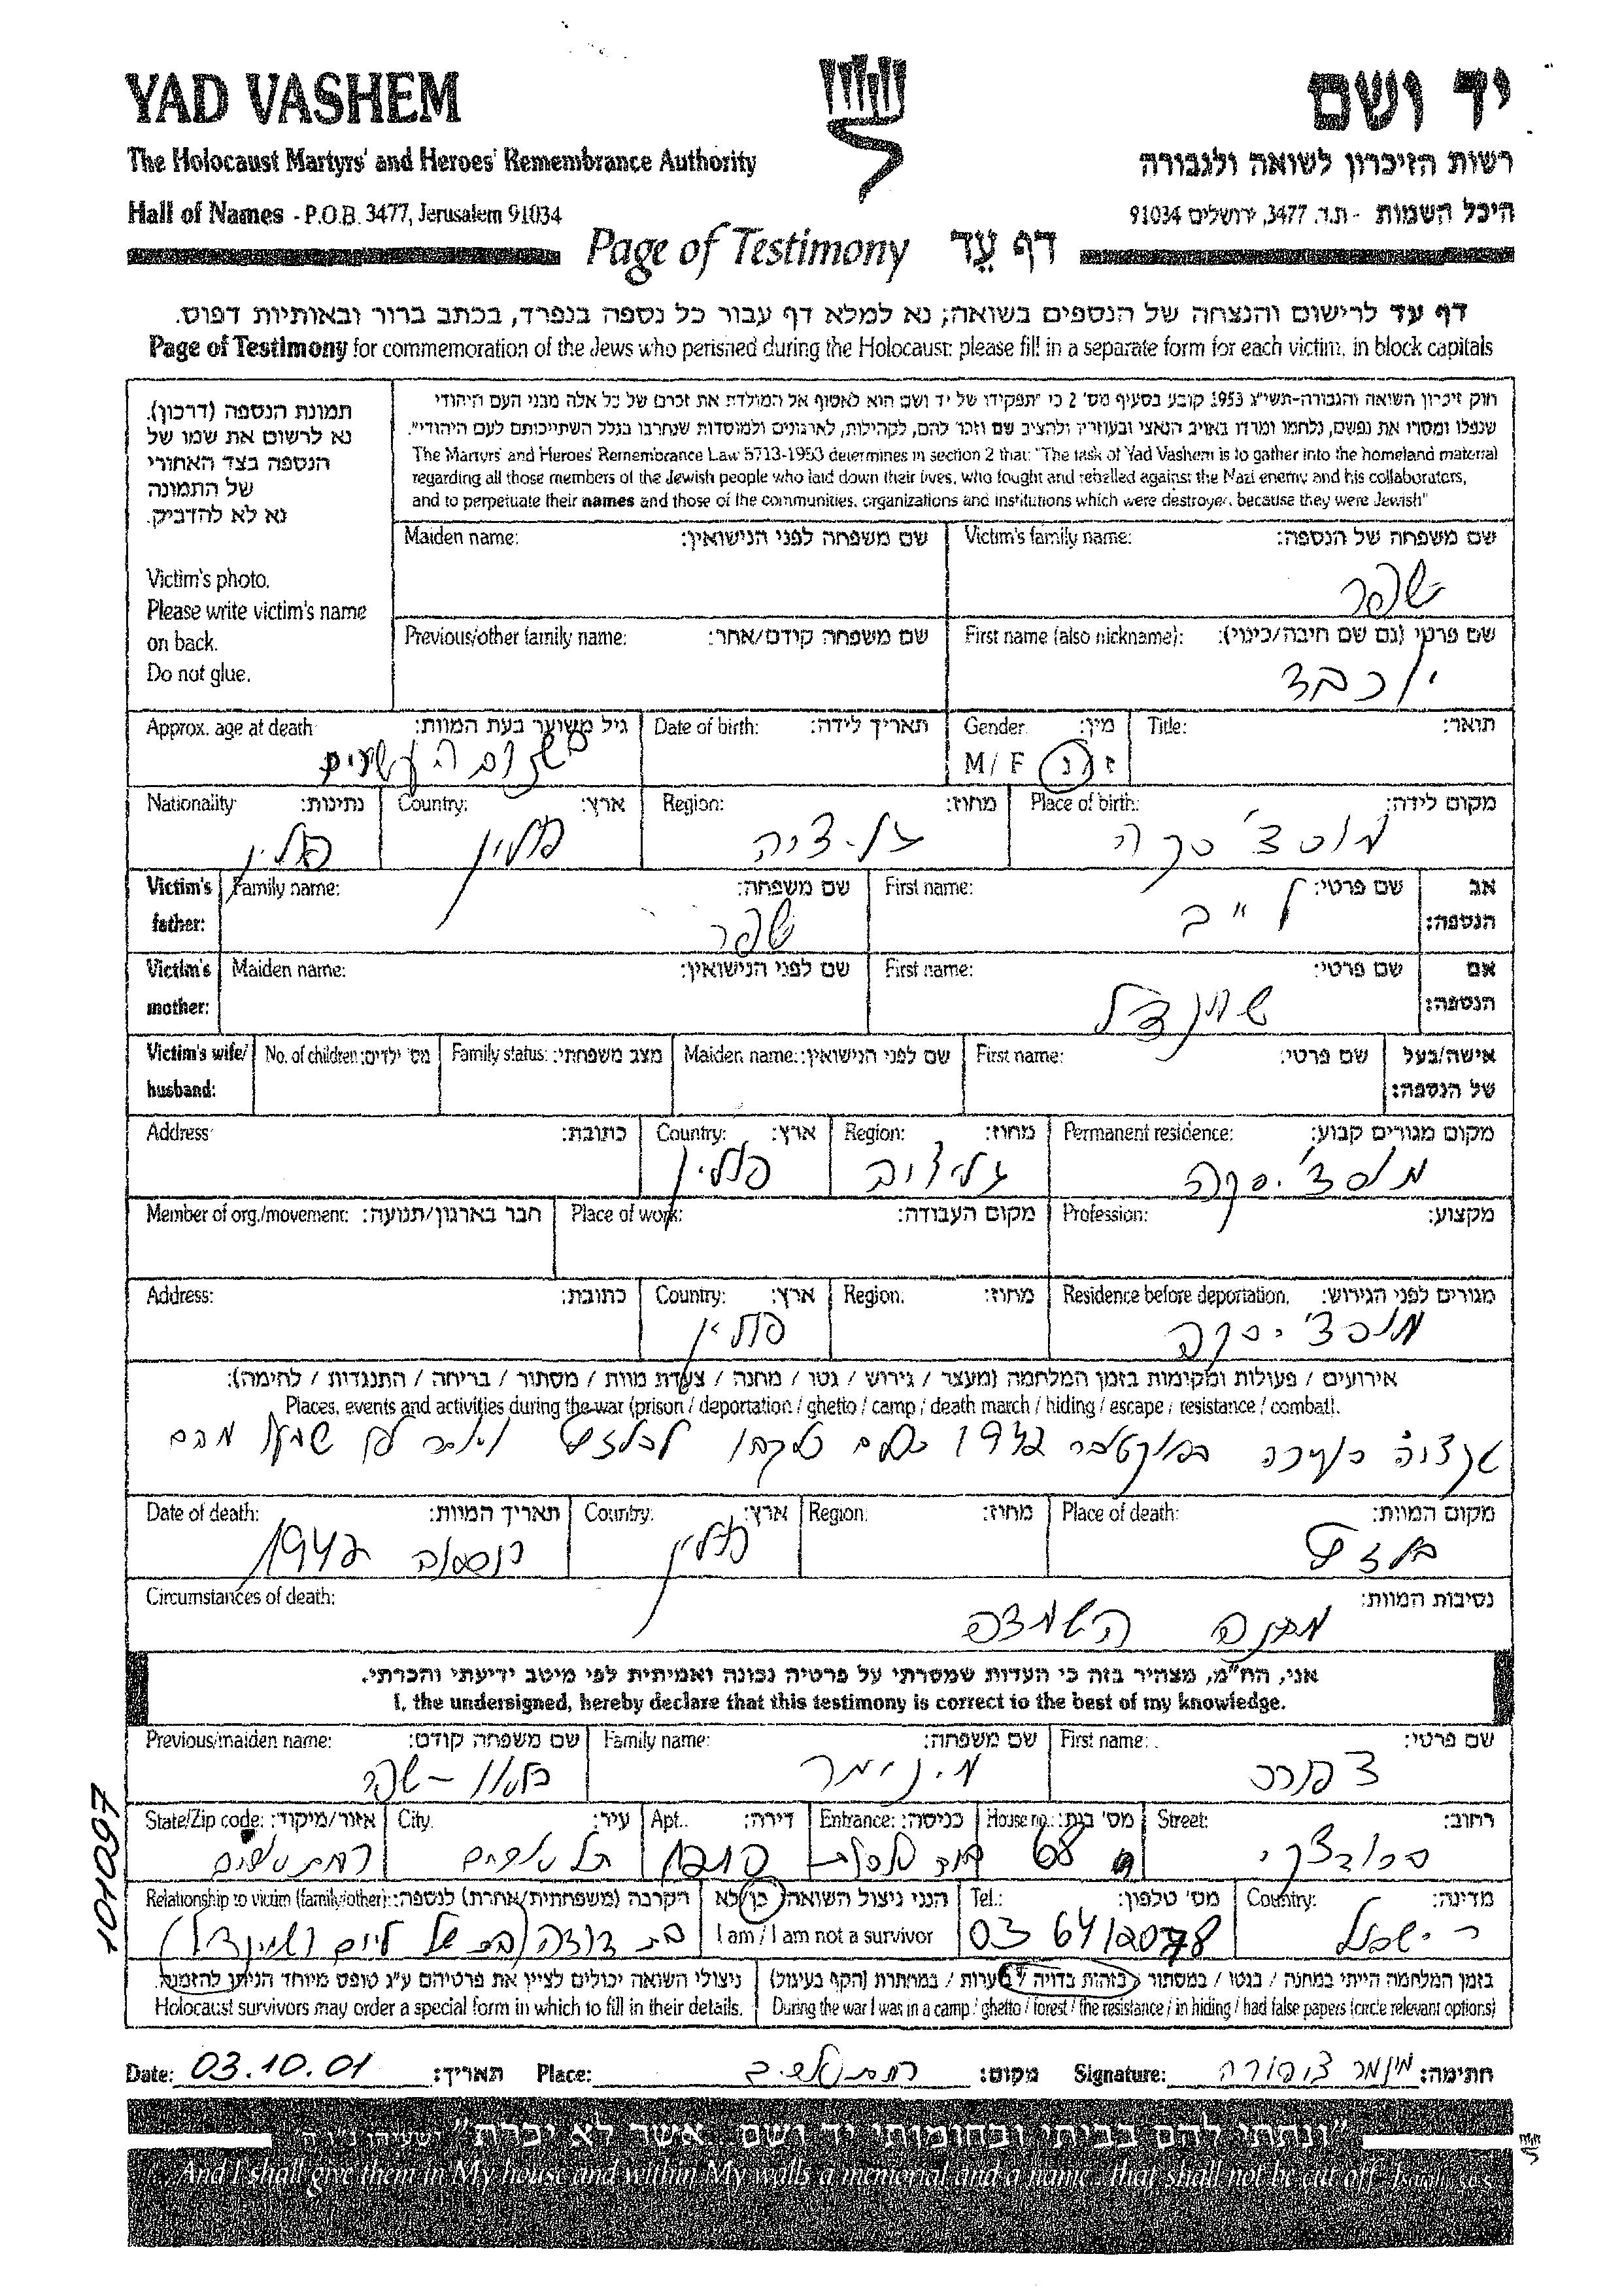 YAD VASHEM
יד ושם
The Holocaust Martyrs' and Heroes' Remembrance Authority
רשות הזיכרון לשואה ולגבורה
Hall of Names - P.O.B. 3477, Jerusalem 91034
היכל השמות - ת.ד. 3477, ירושלים 91034
Page of Testimony דף עֵד
דף עד לרישום והנצחה של הנספים בשואה; נא למלא דף עבור כל נספה בנפרד, בכתב ברור ובאותיות דפוס.
Page of Testimony for commemoration of the Jews who perished during the Holocaust: please fill in a separate form for each victim, in block capitals
תמונת הנספה (דרכון).
נא לרשום את שמו של
הנספה בצד האחורי
של התמונה
נא לא להדביק.
Victim's photo.
Please write victim's name
on back.
Do not glue.
חוק זיכרון השואה והגבורה-תשי"ג 1953 קובע בסעיף מס' 2 כי "תפקידו של יד ושם הוא לאסוף אל המולדת את זכרם של כל אלה מבני העם היהודי
שנפלו ומסרו את נפשם, נלחמו ומרדו באויב הנאצי ובעוזריו ולהציב שם וזכר להם, לקהילות, לארגונים ולמוסדות שנחרבו בגלל השתייכותם לעם היהודי".
The Martyrs' and Heroes' Remembrance Law 5713-1953 determines in section 2 that: "The task of Yad Vashem is to gather into the homeland material
regarding all those members of the Jewish people who laid down their lives, who fought and rebelled against the Nazi enemy and his collaborators,
and to perpetuate their names and those of the communities, organizations and institutions which were destroyed because they were Jewish"
Victim's family name: שם משפחה של הנספה:
שפר
Maiden name: שם משפחה לפני הנישואין:
First name (also nickname): שם פרטי (גם שם חיבה/כינוי):
יוכבד
Previous/other family name: שם משפחה קודם/אחר:
Title: תואר:
Gender מין:
M / F ז / נ
Date of birth: תאריך לידה:
Approx. age at death גיל משוער בעת המוות:
בשנות העשרים
Place of birth: מקום לידה:
מוסצ'סקה
Region: מחוז:
גליציה
Country: ארץ:
פולין
Nationality נתינות:
פולין
Victim's father: אב הנספה:
First name: שם פרטי:
לייב
Family name: שם משפחה:
שפר
Victim's mother: אם הנספה:
First name: שם פרטי:
שיינדל
Maiden name: שם לפני הנישואין:
Victim's wife/husband: אישה/בעל של הנספה:
First name: שם פרטי:
Maiden name: שם לפני הנישואין:
Family status: מצב משפחתי:
No. of children: מס' ילדים:
Permanent residence: מקום מגורים קבוע:
מוסצ'יסקה
Region: מחוז:
גליציה
Country: ארץ:
פולין
Address כתובת:
Profession: מקצוע:
Place of work: מקום העבודה:
Member of org./movement: חבר בארגון/תנועה:
Residence before deportation. מגורים לפני הגירוש:
מוסצ'יסקה
Region. מחוז:
Country: ארץ:
פולין
Address: כתובת:
אירועים / פעולות ומקומות בזמן המלחמה (מעצר / גירוש / גטו / מחנה / צעדת מוות / מסתור / בריחה / התנגדות / לחימה):
Places, events and activities during the war (prison / deportation / ghetto / camp / death march / hiding / escape / resistance / combat).
אקציה בעיירה באוקטובר 1942 נלקחו לבלזץ ויותר לא שמענו מהם
Place of death: מקום המוות:
בלזץ
Region: מחוז:
Country: ארץ:
פולין
Date of death: תאריך המוות:
1942
Circumstances of death: נסיבות המוות:
מחנה השמדה
אני, הח"מ, מצהיר בזה כי העדות שמסרתי על פרטיה נכונה ואמיתית לפי מיטב ידיעתי והכרתי.
I, the undersigned, hereby declare that this testimony is correct to the best of my knowledge.
First name: שם פרטי:
צפורה
Family name: שם משפחה:
מינימר
Previous/maiden name: שם משפחה קודם:
שפר
Street: רחוב:
ברודצקי
House no.: מס' בית:
68
Entrance: כניסה:
Apt.. דירה:
City. עיר:
תל אביב
State/Zip code: אזור/מיקוד:
רמת אביב
Country: מדינה:
ישראל
Tel.: מס' טלפון:
03 6412078
הנני ניצול השואה כן/לא
I am / I am not a survivor
Relationship to victim (family/other): הקרבה (משפחתית/אחרת) לנספה:
בת דודה
בזמן המלחמה הייתי במחנה / בגטו / במסתור / בזהות בדויה / יערות / במחתרת (הקף בעיגול)
During the war I was in a camp / ghetto / forest / the resistance / in hiding / had false papers (circle relevant options)
ניצולי השואה יכולים לציין את פרטיהם ע"ג טופס מיוחד הניתן להזמנה.
Holocaust survivors may order a special form in which to fill in their details.
101097
Date: 03.10.01 תאריך:
Place: רמת אביב מקום:
Signature: צפורה חתימה:
"ונתתי להם בביתי ובחומותי יד ושם... אשר לא יכרת"
And I shall give them in My house and within My walls a memorial and a name... that shall not be cut off